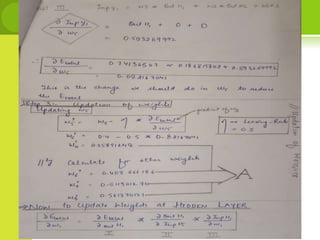 III ∂ Inp y₁ = w5 * Out H1 + w6 * Out H2 + b2 * 2
∂ Inp y₁ / ∂ w5 = Out H1 + 0 + 0
= 0.593269992
∴ ∂ Etotal / ∂ w5 = 0.74136507 * 0.186815602 * 0.593269992
= 0.082167041
This is the change we should do in w5 to reduce
the Etotal
Step 3:- Updation of weights
Updating w5
w5⁺ = w5 - η * ∂Etotal / ∂w5
η = Learning-Rate = 0.5
w5⁺ = 0.4 - 0.5 * 0.82167041
w5⁺ = 0.35891648
//ly Calculate for other weights
w6⁺ = 0.408666186
w7⁺ = 0.511301270
w8⁺ = 0.561370121
A
Now to update weights at HIDDEN LAYER
∂ Etotal / ∂ w1 = ∂ Etotal / ∂ out H1 * ∂ Out H1 / ∂ Inp H1 * ∂ Inp H1 / ∂ w1
I II III